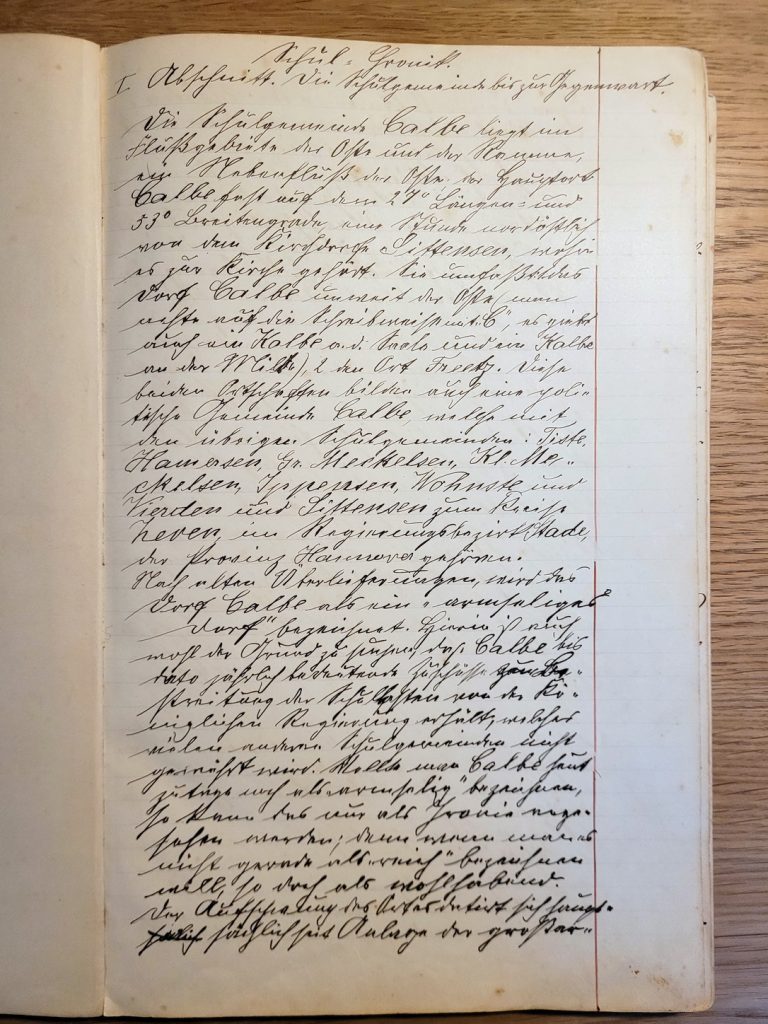 Schul-Chronik.
I Abschnitt. Die Schulgemeinde bis zur Gegenwart.
Die Schulgemeinde Calbe liegt im
Flußgebiete der Oste und der Ramme,
ein Nebenfluß der Oste. der Hauptort
Calbe fast auf dem 27° Längen- und
53° Breitengrade, eine Stunde nordöstlich
von dem Kirchdorfe Sittensen, wohin
es zur Kirche gehört. Sie umfaßt das
Dorf Calbe unweit der Oste (man
achte auf die Schreibweise mit „C“, es giebt
auch ein Kalbe a. d. Saale und ein Kalbe
an der Milde), 2 den Ort Freetz. Diese
beiden Ortschaften bilden auch eine poli-
tische Gemeinde Calbe, welche mit
den übrigen Schulgemeinden: Tiste,
Hamersen, Gr. Meckelsen, Kl. Me-
ckelsen, Ippensen, Wohnste und
Vierden und Sittensen zum Kreise
Zeven, im Regierungsbezirk Stade,
der Provinz Hannover gehören.
Nach alten Überlieferungen, wird das
Dorf Calbe als ein „armseliges
Dorf“ bezeichnet. Hierin ist auch
wohl der Grund zu suchen, daß Calbe bis
dato jährlich bedeutende Zuschüsse zur Be-
streitung der Schullasten von der Kö-
niglichen Regierung erhält, welches
vielen anderen Schulgemeinden nicht
gewährt wird. Wollte man Calbe heut
zutage noch als „armselig“ bezeichnen,
so kann das nur als Ironie ange-
sehen werden; denn wenn man es
nicht gerade als „reich“ bezeichnen
will, so doch als wohlhabend.
Der Aufschwung des Ortes datirt sich haupt-
sächlich seit Anlage der großar-